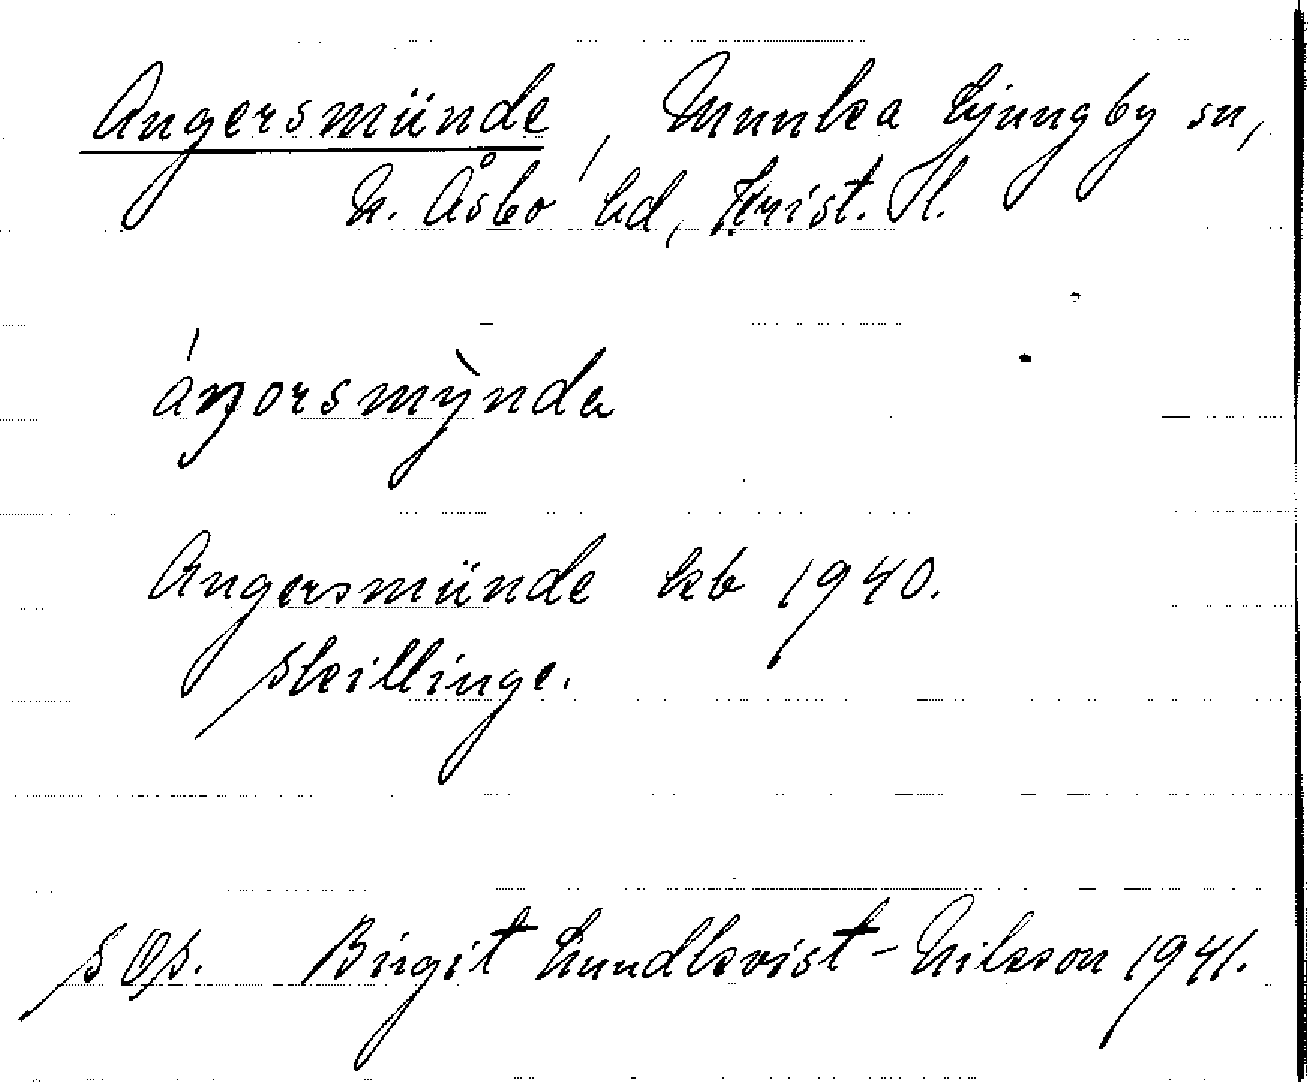 Angersmünde, Munka Ljungby sn,
N. Åsbo hd, Krist. l.
áŋorsmỳnda
Angersmünde kb 1940.
Skillinge.
Birgit Lundkvist-Nilsson 1941.